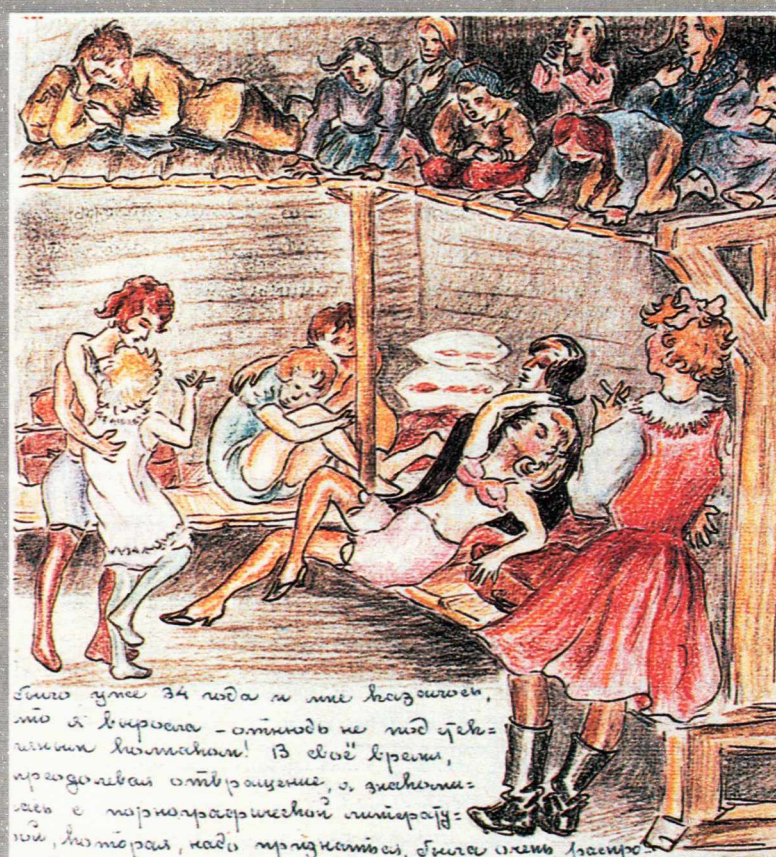 было уже 34 года и мне казалось,
что я выросла – отнюдь не под стек=
лянным колпаком! В своё время,
преодолевая отвращение, я знакоми=
лась с порнографической литерату=
рой, которая, надо признаться, была очень распро-